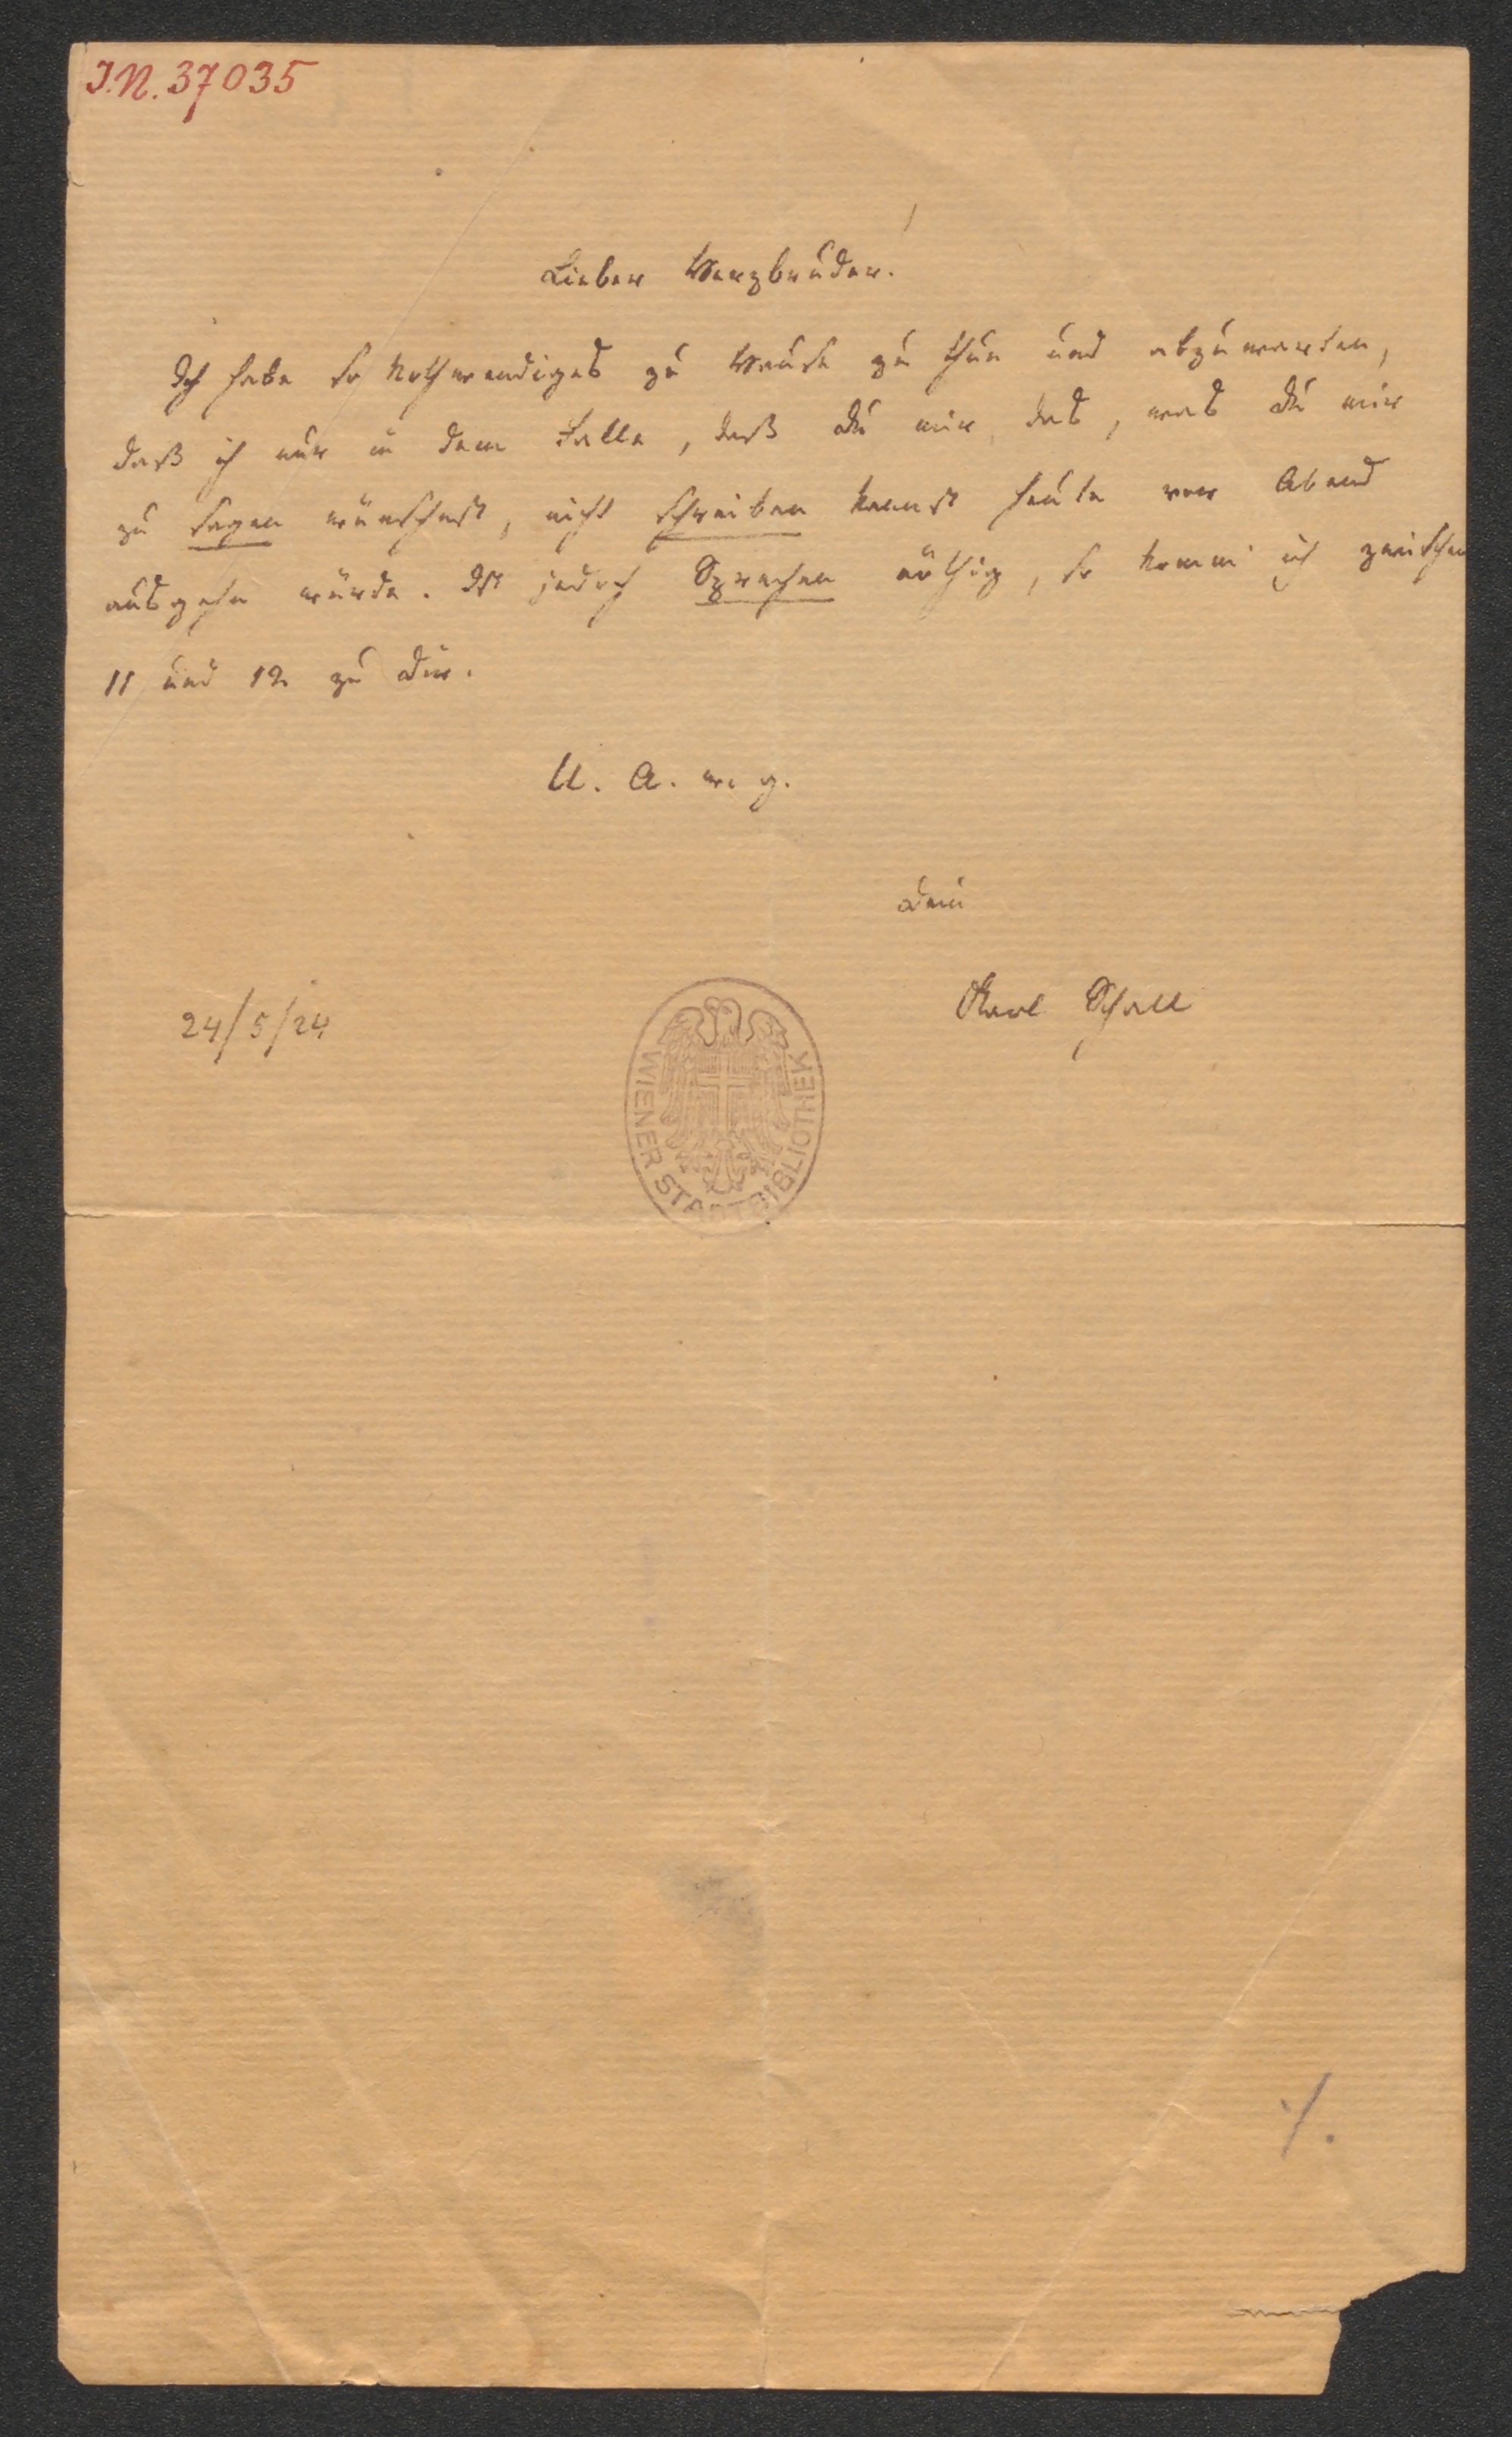 I.N. 37035
Lieber Herzbruder!
Ich habe so Nothwendiges zu Hause zu thun und abzuwarten,
daß ich nur in dem Falle, daß Du mir das, was Du mir
zu sagen wünschest, nicht schreiben kannst heute vor Abend
ausgehn würde. Ist jedoch Sprechen nöthig, so komm' ich zwischen
11 und 12 zu Dir.
U. A. w. g.
Dein
Karl Schall
24/5/24
WIENER STADTBIBLIOTHEK
./.